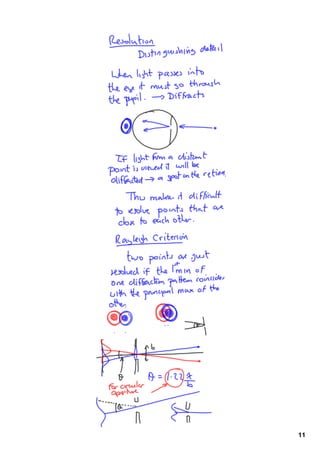 Resolution
Distinguishing detail
When light passes into
the eye it must go through
the pupil. → Diffracts
If light from a distant
point is viewed it will be
diffracted → a spot on the retina
This makes it difficult
to resolve points that are
close to each other.
Rayleigh Criterion
two points are just
resolved if the 1st min of
one diffraction pattern coincides
with the principal max of the
other.
b
θ
θ = 1.22 λ/b
For circular
aperture
u
11